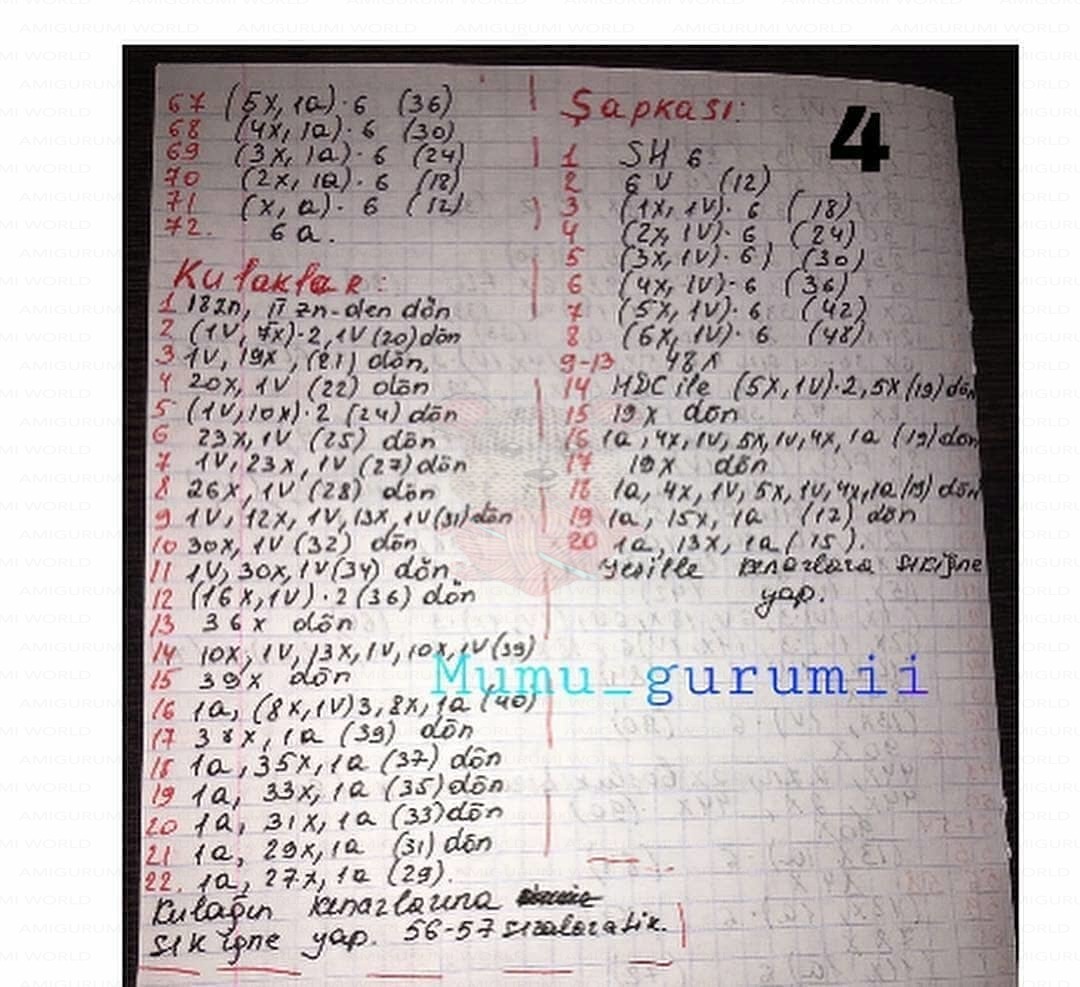 67 (5X, 1a)·6 (36)
68 (4x, 1a)·6 (30)
69 (3x, 1a)·6 (24)
70 (2x, 1a)·6 (18)
71 (x, a)·6 (12)
72. 6a.
Kulaklar:
1 18Zn, II zn-den dön
2 (1V, 7x)·2, 1V (20) dön
3 1V, 19x, (21) dön.
4 20x, 1V (22) dön
5 (1V, 10x)·2 (24) dön
6 23x, 1V (25) dön
7 1V, 23x, 1V (27) dön
8 26x, 1V (28) dön
9 1V, 12x, 1V, 13x, 1V (31) dön
10 30x, 1V (32) dön
11 1V, 30x, 1V (34) dön
12 (16x, 1V)·2 (36) dön
13 36x dön
14 10x, 1V, 13x, 1V, 10x, 1V (39)
15 39x dön
16 1a, (8x, 1V)3, 8x, 1a (40)
17 38x, 1a (39) dön
18 1a, 35x, 1a (37) dön
19 1a, 33x, 1a (35) dön
20 1a, 31x, 1a (33) dön
21 1a, 29x, 1a (31) dön
22. 1a, 27x, 1a (29).
Kulağın kenarlarına
sık iğne yap. 56-57 sıralara dik.
Şapkası:
4
1 SH 6
2 6V (12)
3 (1x, 1V)·6 (18)
4 (2x, 1V)·6 (24)
5 (3x, 1V)·6) (30)
6 (4x, 1V)·6 (36)
7 (5x, 1V)·6 (42)
8 (6x, 1V)·6 (48)
9-13 48x
14 HDC ile (5x, 1V)·2, 5x (19) dön
15 19x dön
16 1a, 4x, 1V, 5x, 1V, 4x, 1a (19) dön
17 19x dön
18 1a, 4x, 1V, 5x, 1V, 4x, 1a (19) dön
19 1a, 15x, 1a (17) dön
20 1a, 13x, 1a (15).
yeşille kenarlara sık iğne
yap.
Mumu_gurumii
AMIGURUMI WORLD